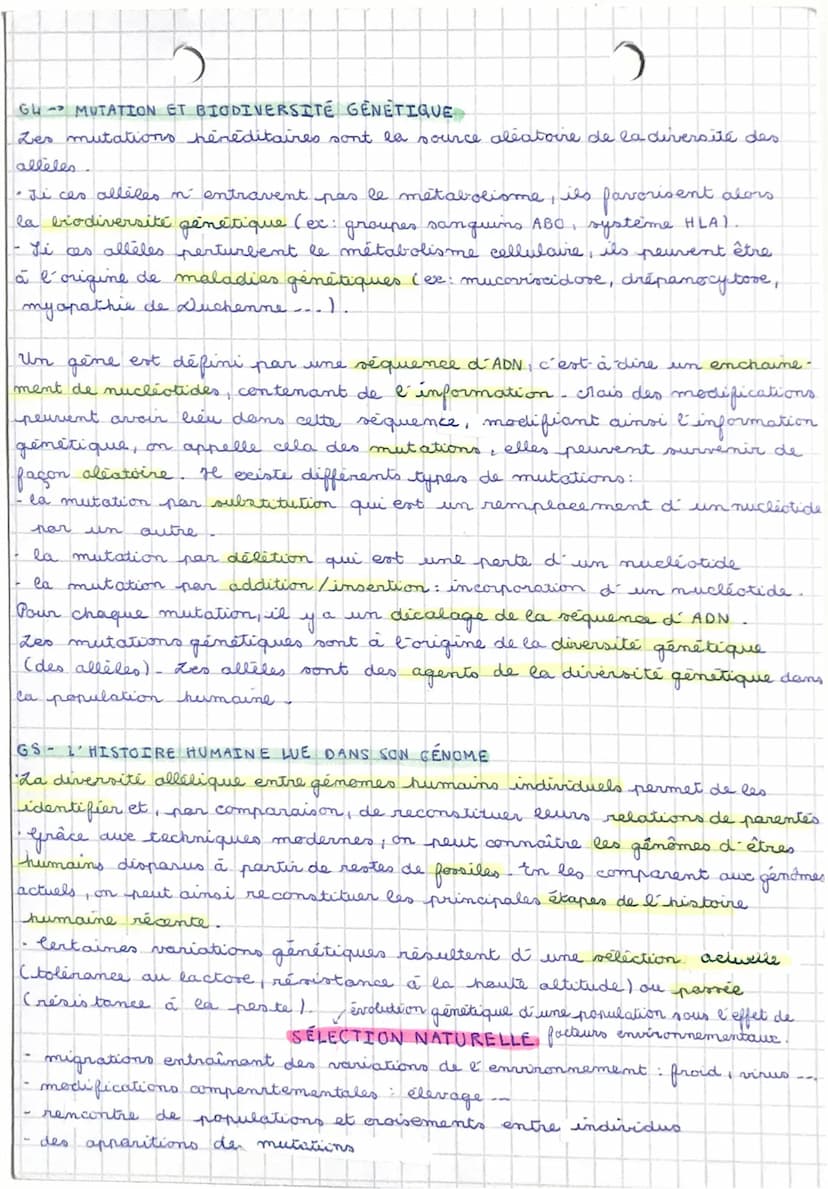 G4 -> MUTATION ET BIODIVERSITÉ GÉNÉTIQUE
Les mutations héréditaires sont la source aléatoire de la diversité des
allèles.
• Si ces allèles n'entravent pas le métabolisme, ils favorisent alors
la biodiversité génétique (ex: groupes sanguins ABO, système HLA).
- Si ces allèles perturbent le métabolisme cellulaire, ils peuvent être
à l'origine de maladies génétiques (ex: mucoviscidose, drépanocytose,
myopathie de Duchenne ...).
Un gène est défini par une séquence d'ADN, c'est-à-dire un enchaine-
ment de nucléotides, contenant de l'information. Mais des modifications
peuvent avoir lieu dans cette séquence, modifiant ainsi l'information
génétique, on appelle cela des mutations, elles peuvent survenir de
façon aléatoire. Il existe différents types de mutations:
- la mutation par substitution qui est un remplacement d'un nucléotide
par un autre.
- la mutation par délétion qui est une perte d'un nucléotide
- la mutation par addition/insertion: incorporation d'un nucléotide.
Pour chaque mutation, il y a un décalage de la séquence d'ADN.
Les mutations génétiques sont à l'origine de la diversité génétique
(des allèles). Les allèles sont des agents de la diversité génétique dans
la population humaine.
G5 - L'HISTOIRE HUMAINE LUE DANS SON GÉNOME
•La diversité allélique entre génomes humains individuels permet de les
identifier et, par comparaison, de reconstituer leurs relations de parentés
• Grâce aux techniques modernes, on peut connaître les génômes d'êtres
humains disparus à partir de restes de fossiles. En les comparent aux génômes
actuels, on peut ainsi reconstituer les principales étapes de l'histoire
humaine récente.
• Certaines variations génétiques résultent d'une séléction actuelle
(tolérance au lactose, résistance à la haute altitude) ou passée
(résistance à la peste). évolution génétique d'une population sous l'effet de
SÉLECTION NATURELLE facteurs environnementaux.
- migrations entraînant des variations de l'environnement: froid, virus ...
- modifications comportementales: élevage ...
- rencontre de populations et croisements entre individus
- des apparitions de mutations